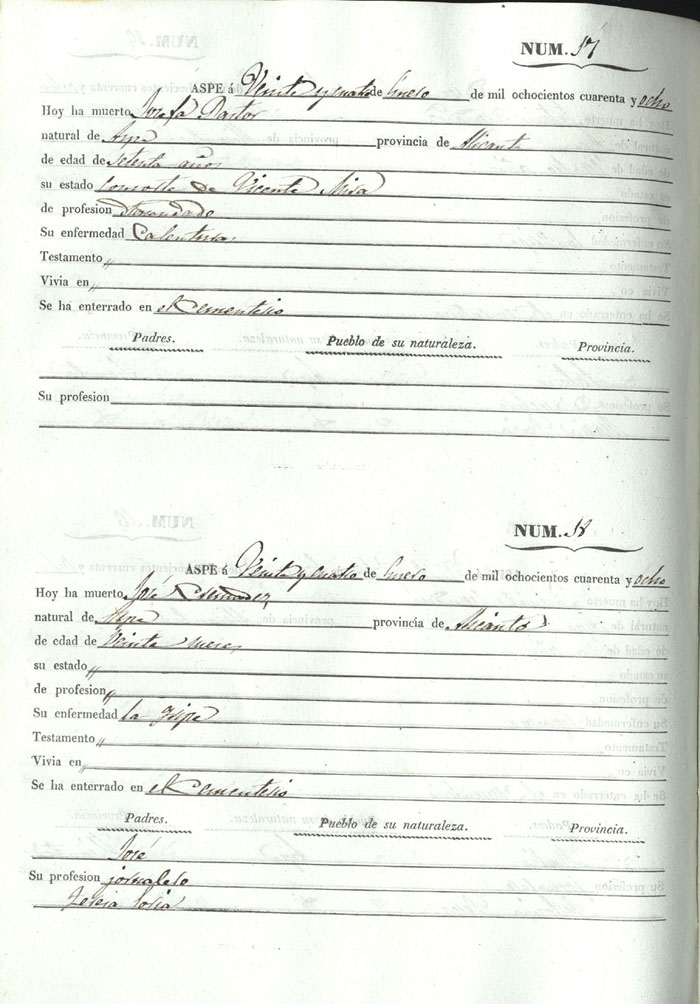 NUM. 17
ASPE á Veinte y cuatro de Enero de mil ochocientos cuarenta y ocho
Hoy ha muerto Josefa Pastor
natural de Aspe provincia de Alicante
de edad de setenta años
su estado consorte de Vicente Mira
de profesion
Su enfermedad Calentura
Testamento "
Vivia en "
Se há enterrado en el Cementerio
Padres. Pueblo de su naturaleza. Provincia.
Su profesion
NUM. 18
ASPE á Veinte y cuatro de Enero de mil ochocientos cuarenta y ocho
Hoy ha muerto José
natural de Aspe provincia de Alicante
de edad de Veinte meses
su estado "
de profesion "
Su enfermedad la
Testamento "
Vivia en "
Se ha enterrado en el Cementerio
Padres. Pueblo de su naturaleza. Provincia.
José
Su profesion jornalero
Teresa